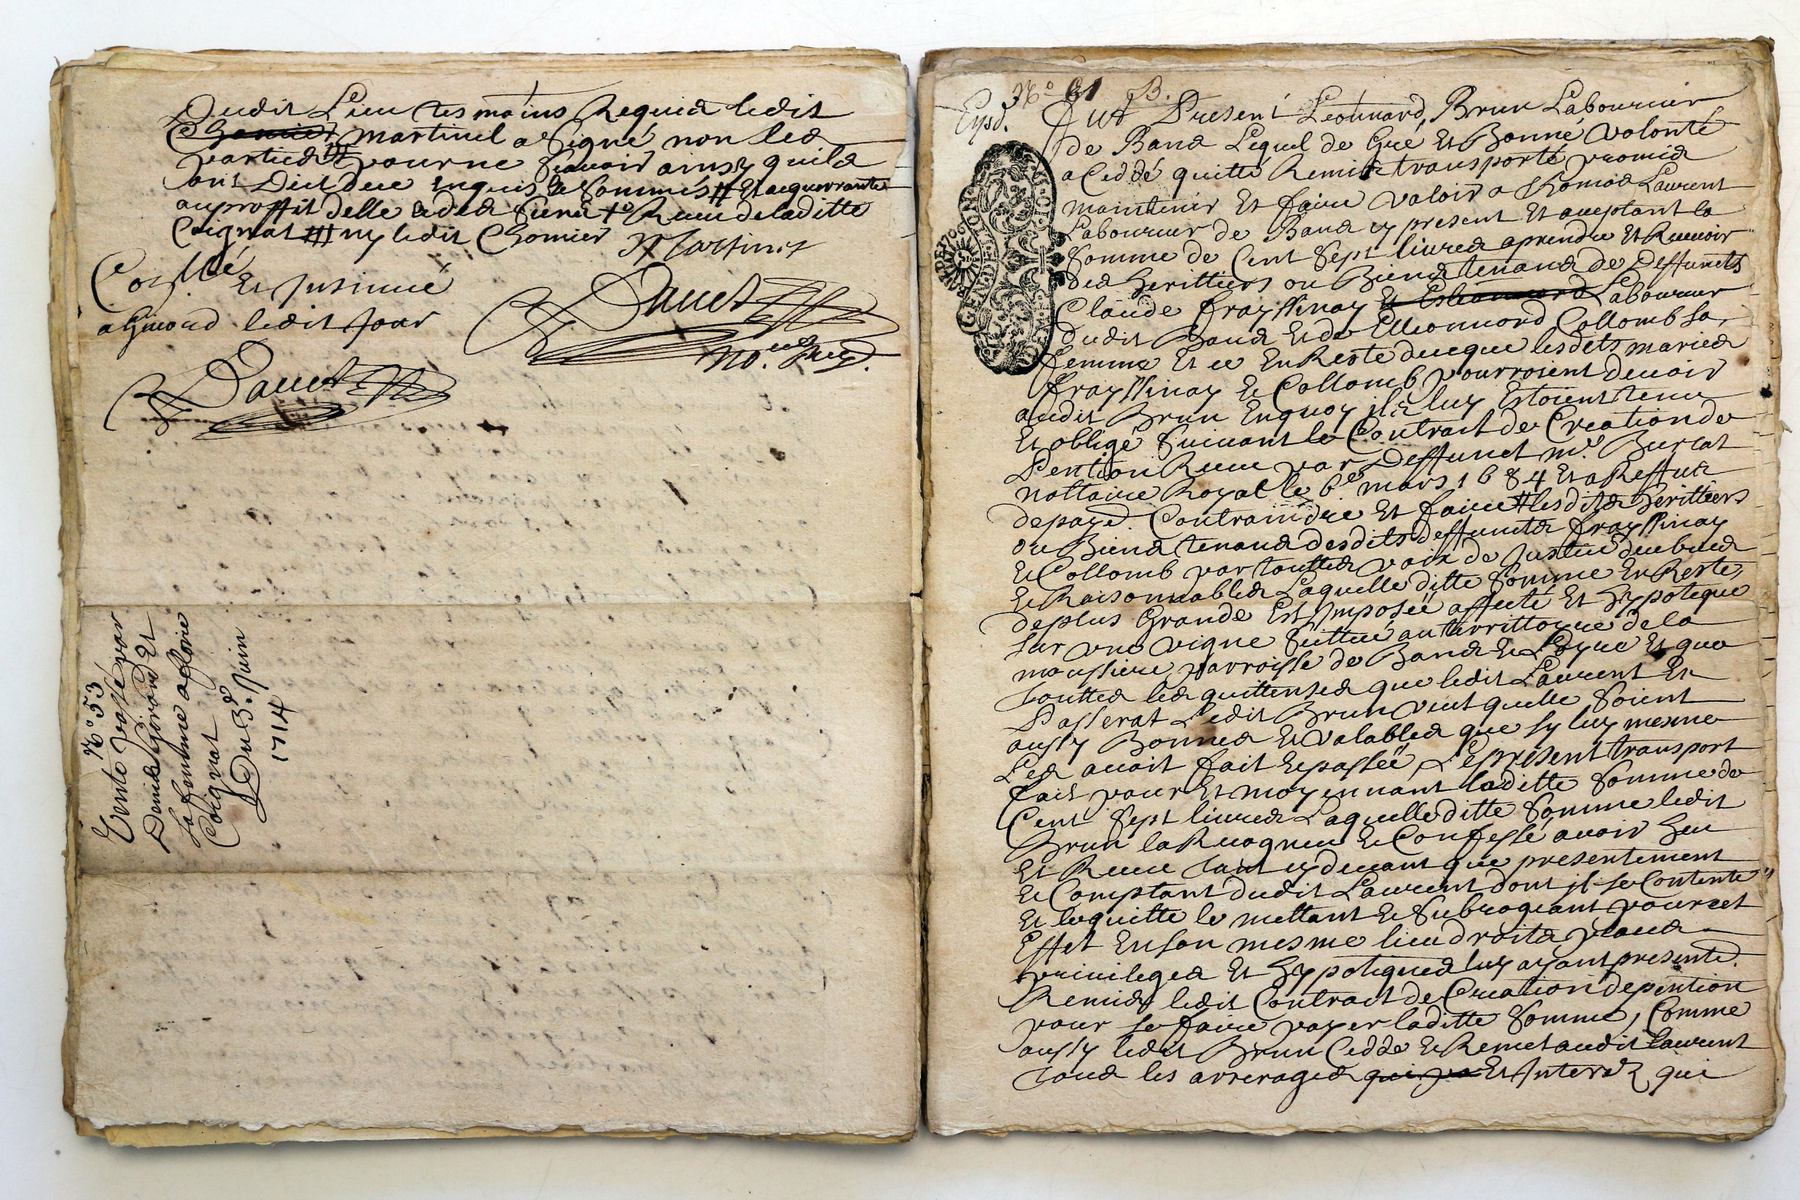 Dudit Lieu tes moins Requis ledit
Chomier martinel a Signé non les
parties pour ne Scavoir ainsy quils
ont Dict de ce Enquis & Sommés # Et acquerrante
au proffit delle
Coignat ny ledit Chomier Martinel
Coll.né Et Insinué
a Givord ledit Jour
Dauet
not. Roy.
Dauet
N° 53
Vente passé par
Denis Girard Et
Sa femme a
Coignat
Du 3e Juin
1714
N° 61 B.
Expd.
Fut Present Leonnard Brun Labourier
de Bans Lequel de Gré Et Bonne volonté
a Ceddé quitté Remis transporté promis
maintenir Et faire valoir a Thomas Laurent
Labourier de Bans cy present Et aceptant la
Somme de Cent Sept livres aprendre Et Recevoir
des heritiers ou Biens tenans de Deffuncts
Claude frayssinay Labourier
dudit Bans Et de Collomb Sa
femme Et ce En Reste de ce que lesdits mariés
frayssinay & Collomb pourroient devoir
audit Brun Enquoy ils luy Estoient tenu
Et obligé Suivant le Contrait de Creation de
Pention Receu par Deffunct me. Burlat
nottaire Royal le 6e mars 1684 Et a Reffus
de paye. Contraindre Et faire lesdits heritiers
ou Biens tenans desdits deffuncts frayssinay
& Collomb par touttes voix de Justice deubues
& Raisonnables Laquelle ditte Somme En Reste
de plus Grande Est Imposée affecté Et hypotequé
Sur une vigne Scittué au territtoyre de la
moussiere parroisse de Bans Et que
touttes les quittenses que ledit Laurent En
Passerat Ledit Brun veut quelle Soient
aussy Bonnes & valables que sy luy mesme
Les avoit fait & passée, Le present transport
fait pour Et moyennant laditte Somme de
Cent Sept livres Laquelle ditte Somme ledit
Brun la Recognue & Confessé avoir heu
Et Receu tant cy devant que presentement
& Comptant dudit Laurent dont il se Contente
Et le quitte le mettant & Subrogeant pour cet
Effet En son mesme lieu droits place
privileges Et hypotiques luy ayant presente.
Remis ledit Contrait de Creation de pention
pour se faire payer laditte Somme, Comme
aussy ledit Brun Cedde & Remet audit Laurent
tous les arrerages Et Interez qui